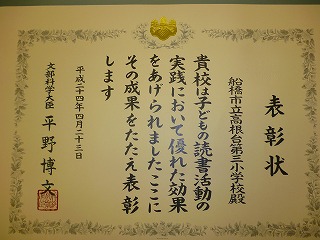 表彰状
船橋市立高根台第三小学校殿
貴校は子どもの読書活動の
実践において優れた効果
をあげられました ここに
その成果をたたえ表彰
します
平成二十四年四月二十三日
文部科学大臣 平野博文